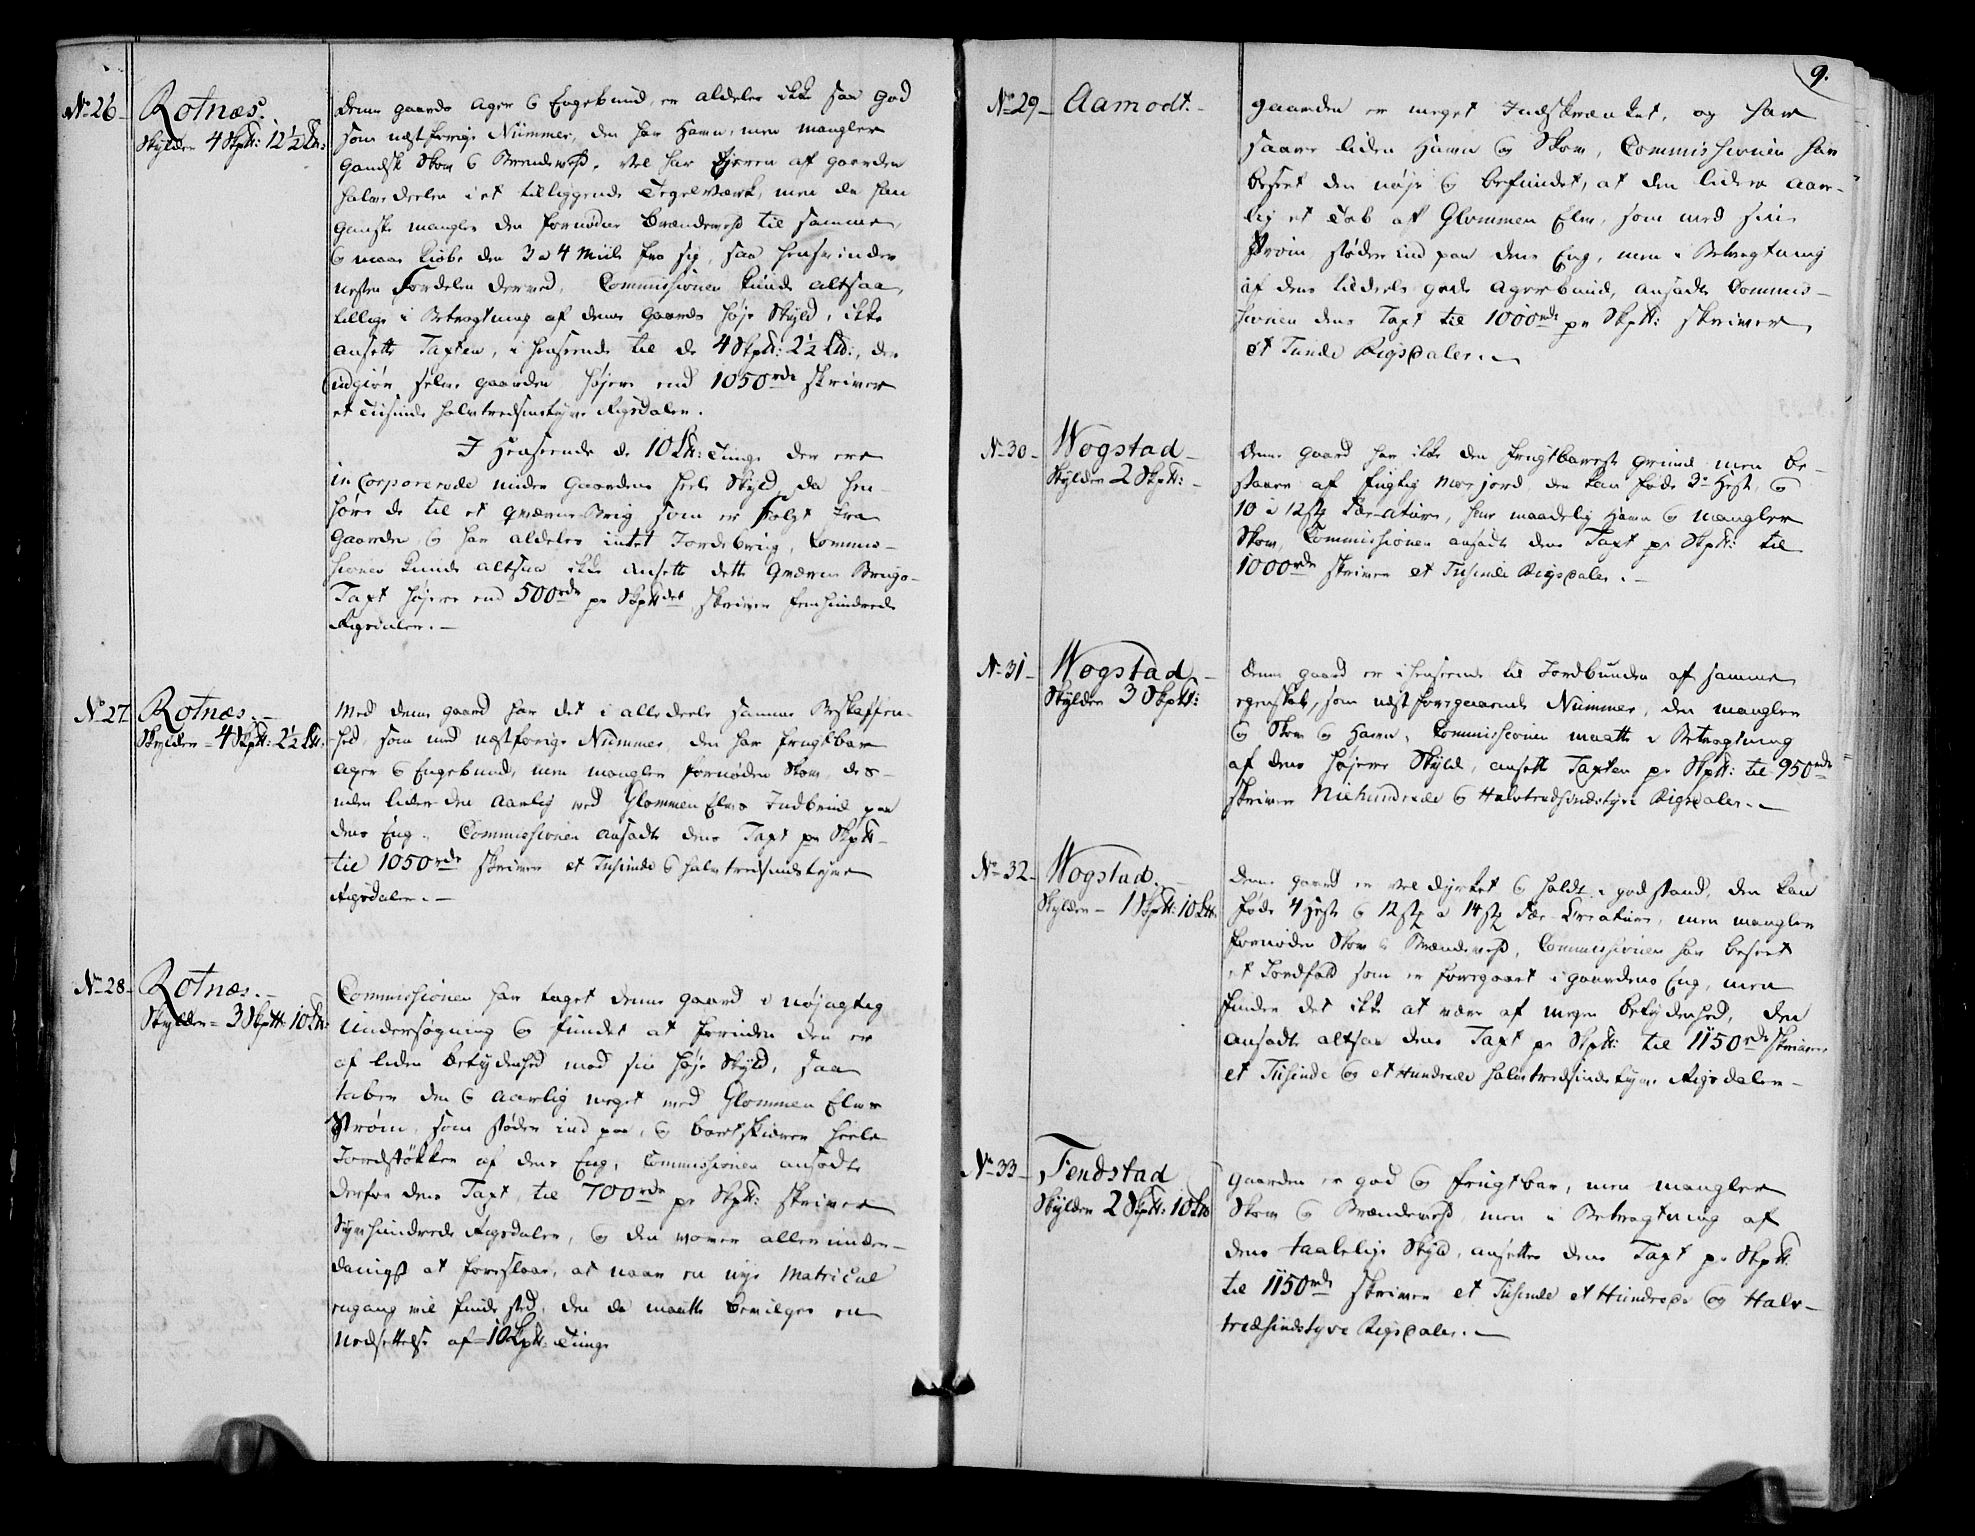 No 26 Rotnæs.
Skylder 4 Skptt: 12½ Ltt:
Denne gaards Ager & Engebund, er aldeles ikke saa god
som næstforrige Nummer, den har Havn, men mangler
gandsk Skov & Brændeved. Vel har Ejeren af gaarden
halve deelen i et tilliggende Tegelværk, men da han
ganske mangler den fornødne Brændeved til samme,
& maa kiøbe den 3 a 4 Miile fra sig, saa henseinder
nesten Fordelen derved, Commissionen kunde altsaa,
tillige i Betragtning af denne Gaards høje Skyld, ikke
ansette Taxten, i henseende til de 4 Skptt: 2½ Ltt:, der
udgiør selve gaarden højere end 1050 rdr skriver
et Tusinde halvtredsindstyve Rigsdaler.
I Henseende de 10 Ltt: Tunge der ere
incorporerede under Gaardens heele Skyld, da hen-
høre de til et Qværne Brug som er solgt fra
Gaarden & har aldeles intet Jordebrug, Commis-
sionen kunde altsaa ikke Ansette dette Qværne Brugs
Taxt højere end 500 rdr pr Skptt det skriver femhundrede
Rigsdaler. —
No 27 Rotnæs. —
Skylder - 4 Skptt: 2½ Ltt.
Med denne gaard har det i alle deele samme Beskaffen-
hed, som med næstforrige Nummer, den har frugtbar
Ager & Engebund, men mangler fornøden Skov, des-
uden lider den aarlig ved Glommen Elvs Indbrud paa
dens Eng. Commissionen ansadte dens Taxt pr Skptt
til 1050 rdr skriver et Tusinde & halvtredsindstyve
Rigsdaler. —
No 28 - Rotnæs. —
Skylder - 3 Skptt 10 Ltt:
Commissionen har taget denne gaard i nøjagtig
Undersøgning & fundet at foruden den er
af liden betydenhed mod sin høje Skyld, saa
taber den & aarlig meget ved Glommen Elvs
Strøm, som støder ind paa, & bortskierer heele
Jordstøkker af dens Eng, Commissionen ansadte
derfor dens Taxt, til 700 rdr pr Skptt: skriver
Syvhundrede Rigsdaler, & den vover allerunder-
danigst at foreslaae, at naar en nye Matricul
engang vil finde sted, den da maatte bevilges en
Nedsettelse af 10 Lptt: Tunge
9.
No 29 - Aamodt. -
Gaarden er meget Indskrænket, og har
saare liden Havn & Skov, Commissionen har
beseet den nøje & befundet, at den lider Aar-
lig et Tab af Glommen Elv, som med sin
Strøm støder ind paa dens Eng, men i Betragtning
af dens tildeels gode Agerbund, ansadte Commis-
sionen dens Taxt til 1000 rdr pr Skptt: skriver
et Tusinde Rigsdaler. —
No 30 - Wogstad -
Skylder 2 Skptt: -
Denne gaard har ikke den frugtbareste Grund men be-
staaer af fugtig Moesjord, den kan føde 3de Hest &
10 a 12 stk Fæe-ature, har maadelig Havn & mangler
Skov, Commissionen ansadte dens Taxt pr Skptt: til
1000 rdr skriver et Tusinde Rigsdaler. —
No 31 - Wogstad. -
Skylder 3 Skptt:
Denne gaard er i henseende til Jordbunden af samme
egenskab, som næst foregaaende Nummer, den mangler
& Skov & Havn, Commissionen maatte i Betragtning
af dens højere Skyld, ansette Taxten pr Skptt: til 950 rdr
skriver Niehundrede & Halvtredsindstyve Rigsdaler. —
No 32 - Wogstad. -
Skylder - 1 Skptt: 10 Ltt.
Denne gaard er vel dyrket & holdt i god stand, den kan
føde 4 Heste & 12 stk a 14 stk Fæe-Creature, men mangler
fornøden Skov & Brændeved, Commissionen har beseet
et Jordfald som er foregaaet i gaardens Eng, men
finder det ikke at være af megen betydenhed, den
ansadte altsaa dens Taxt pr Skptt: til 1150 rdr skriver
et Tusinde og et Hundrede halvtredsindstyve Rigsdaler —
No 33 - Fendstad
Skylder 2 Skptt: 10 Ltt
Gaarden er god & frugtbar, men mangler
Skov & Brændeved, men i Betragtning af
dens taalelige Skyld, ansettes dens Taxt pr Skptt:
til 1150 rdr skriver et Tusinde et Hundrede og Halv-
tredsindstyve Rigsdaler. —